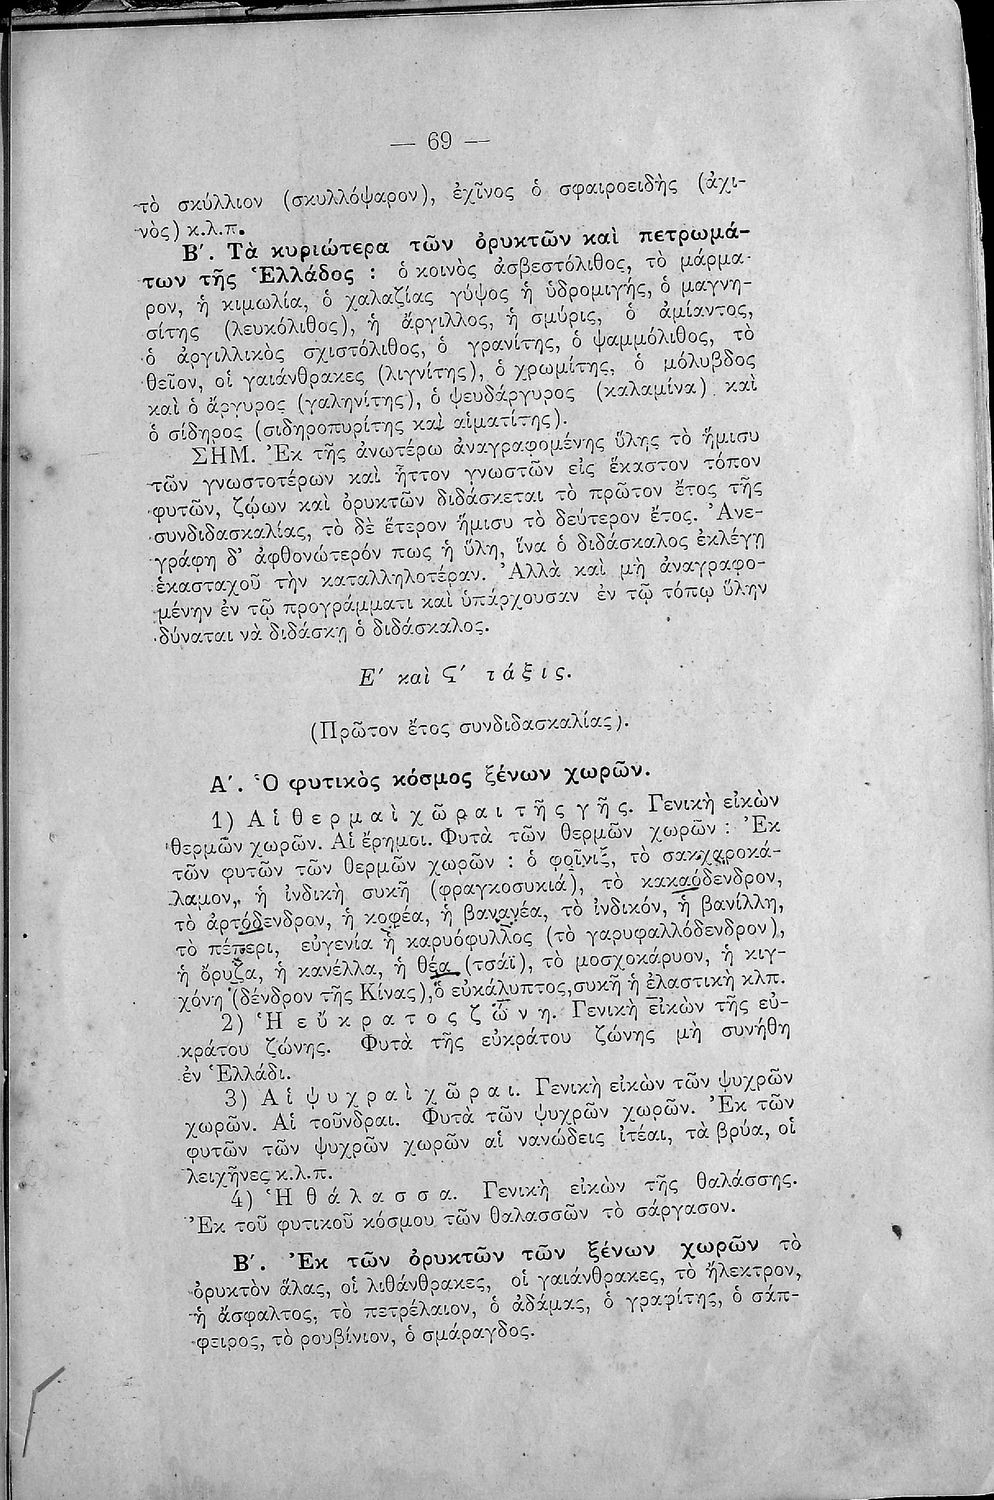 — 69 —
τὸ σκύλλιον (σκυλλόψαρον), ἐχῖνος ὁ σφαιροειδὴς (ἀχι-
νὸς) κ.λ.π.
Β′. Τὰ κυριώτερα τῶν ὀρυκτῶν καὶ πετρωμά-
των τῆς Ἑλλάδος : ὁ κοινὸς ἀσβεστόλιθος, τὸ μάρμα-
ρον, ἡ κιμωλία, ὁ χαλαζίας γύψος ἡ ὑδρομιγής, ὁ μαγνη-
σίτης (λευκόλιθος), ἡ ἄργιλλος, ἡ σμύρις, ὁ ἀμίαντος,
ὁ ἀργιλλικὸς σχιστόλιθος, ὁ γρανίτης, ὁ ψαμμόλιθος, τὸ
θεῖον, οἱ γαιάνθρακες (λιγνίτης), ὁ χρωμίτης, ὁ μόλυβδος
καὶ ὁ ἄργυρος (γαληνίτης), ὁ ψευδάργυρος (καλαμίνα) καὶ
ὁ σίδηρος (σιδηροπυρίτης καὶ αἱματίτης).
ΣΗΜ. Ἐκ τῆς ἀνωτέρω ἀναγραφομένης ὕλης τὸ ἥμισυ
τῶν γνωστοτέρων καὶ ἧττον γνωστῶν εἰς ἕκαστον τόπον
φυτῶν, ζῴων καὶ ὀρυκτῶν διδάσκεται τὸ πρῶτον ἔτος τῆς
συνδιδασκαλίας, τὸ δὲ ἕτερον ἥμισυ τὸ δεύτερον ἔτος. Ἀνε-
γράφη δ’ ἀφθονώτερόν πως ἡ ὕλη, ἵνα ὁ διδάσκαλος ἐκλέγῃ
ἑκασταχοῦ τὴν καταλληλοτέραν. Ἀλλὰ καὶ μὴ ἀναγραφο-
μένην ἐν τῷ προγράμματι καὶ ὑπάρχουσαν ἐν τῷ τόπῳ ὕλην
δύναται νὰ διδάσκῃ ὁ διδάσκαλος.
Ε′ καὶ Ϛ′ τάξις.
(Πρῶτον ἔτος συνδιδασκαλίας).
Α′. Ὁ φυτικὸς κόσμος ξένων χωρῶν.
1) Αἱ θερμαὶ χῶραι τῆς γῆς. Γενικὴ εἰκὼν
θερμῶν χωρῶν. Αἱ ἔρημοι. Φυτὰ τῶν θερμῶν χωρῶν : Ἐκ
τῶν φυτῶν τῶν θερμῶν χωρῶν : ὁ φοῖνιξ, τὸ σακχαροκά-
λαμον, ἡ ἰνδικὴ συκῆ (φραγκοσυκιά), τὸ κακαόδενδρον,
τὸ ἀρτόδενδρον, ἡ κοφέα, ἡ βανανέα, τὸ ἰνδικόν, ἡ βανίλλη,
τὸ πέπερι, εὐγενία ἡ καρυόφυλλος (τὸ γαρυφαλλόδενδρον),
ἡ ὄρυζα, ἡ κανέλλα, ἡ θέα (τσάϊ), τὸ μοσχοκάρυον, ἡ κιγ-
χόνη (δένδρον τῆς Κίνας), ὁ εὐκάλυπτος, συκῆ ἡ ἐλαστικὴ κλπ.
2) Ἡ εὔκρατος ζώνη. Γενικὴ εἰκὼν τῆς εὐ-
κράτου ζώνης. Φυτὰ τῆς εὐκράτου ζώνης μὴ συνήθη
ἐν Ἑλλάδι.
3) Αἱ ψυχραὶ χῶραι. Γενικὴ εἰκὼν τῶν ψυχρῶν
χωρῶν. Αἱ τοῦνδραι. Φυτὰ τῶν ψυχρῶν χωρῶν. Ἐκ τῶν
φυτῶν τῶν ψυχρῶν χωρῶν αἱ νανώδεις ἰτέαι, τὰ βρύα, οἱ
λειχῆνες κ.λ.π.
4) Ἡ θάλασσα. Γενικὴ εἰκὼν τῆς θαλάσσης.
Ἐκ τοῦ φυτικοῦ κόσμου τῶν θαλασσῶν τὸ σάργασον.
Β′. Ἐκ τῶν ὀρυκτῶν τῶν ξένων χωρῶν τὸ
ὀρυκτὸν ἅλας, οἱ λιθάνθρακες, οἱ γαιάνθρακες, τὸ ἤλεκτρον,
ἡ ἄσφαλτος, τὸ πετρέλαιον, ὁ ἀδάμας, ὁ γραφίτης, ὁ σάπ-
φειρος, τὸ ρουβίνιον, ὁ σμάραγδος.